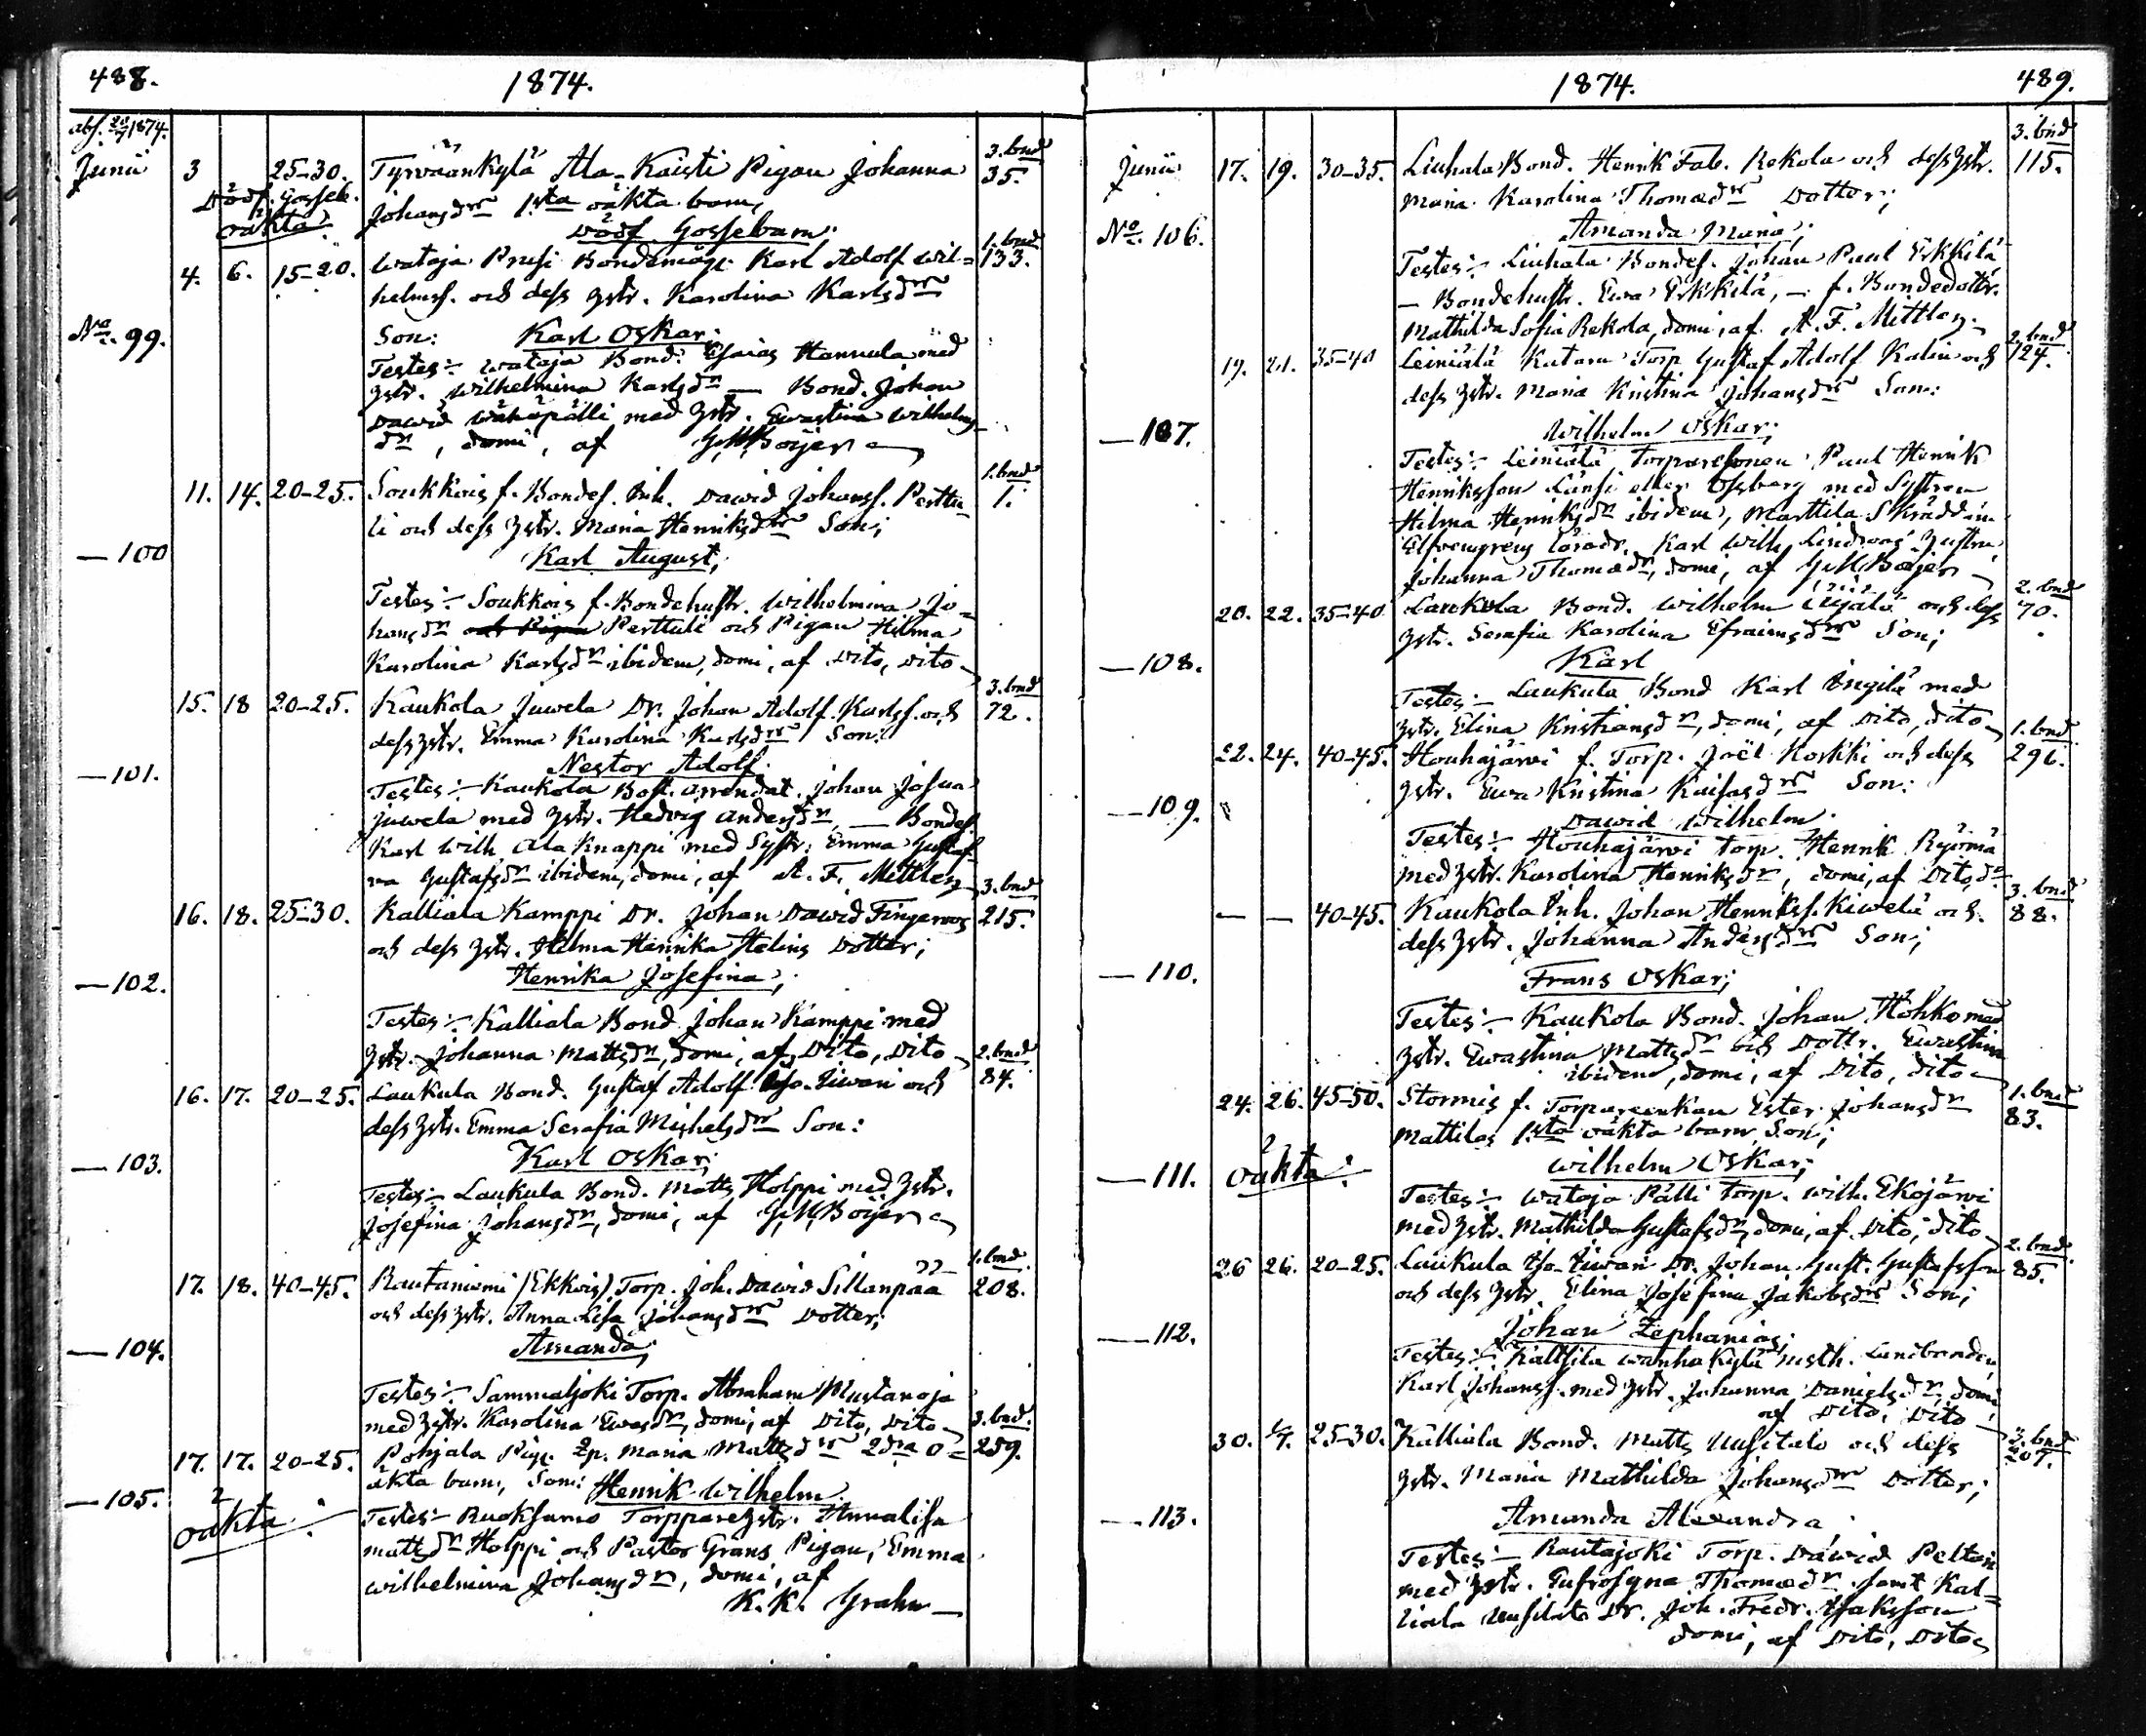 488.
1874.
abs. 20/7 1874.
Junii 3 25-30. Tyrväänkylä Ala-Kaisti Pigan Johanna 3. bnd 35.
Dödf. Gosseb. oäkta. Johansdr 1sta oäkta barn,
Dödf Gossebarn.
4. 6. 15-20. Wataja Prusi Bondemåg. Karl Adolf Wil= 1. bnd 133.
helmsf. och dess hstr. Karolina Karlsdrs
No. 99. Son: Karl Oskar;
Testes: Wataja Bond. Esaias Hannula med
hstr. Wilhelmina Karlsdr — Bond. Johan
Dawid Wähäpälli med hstr. Ewastina Wilhelms
dr, domi, af G. M. Boijer
11. 14. 20-25. Soukkois f. Bondes. Inh. Dawid Johansf. Perttu 1. bnd 1.
li och dess hstr. Maria Henriksdrs Son;
—100 Karl August;
Testes: Soukkois f. Bondehustr. Wilhelmina Jo=
hansdr Perttuli och Pigan Hilma
Karolina Karlsdr ibidem, domi, af Dito, Dito
15. 18 20-25. Kaukola Juwela Dr. Johan Adolf Karlsf. och 3. bnd 72.
dess hstr. Emma Karolina Karlsdrs Son:
—101. Nestor Adolf.
Testes: Kaukola Bost. arrendat. Johan Josua
Juwela med hstr. Hedvig Andersdr — Bondes.
Karl Wilh Ala Knappi med Systr. Emma Gustaf-
va Gustafsdr ibidem, domi, af A. F. Mittler
16. 18. 25-30. Kalliala Kamppi Dr. Johan Dawid Fingerroos 3. bnd 215.
och dess hstr. Hilma Henrika Helins Dotter;
—102. Henrika Josefina;
Testes: Kalliala Bond Johan Kamppi med
hstr. Johanna Mattsdr, domi, af Dito, Dito
16. 17. 20-25. Laukula Bond. Gustaf Adolf Yso-Iiwari och 2. bnd 84.
dess hstr. Emma Serafia Michelsdrs Son:
—103. Karl Oskar;
Testes: Laukula Bond. Matts Holppi med hstr.
Josefina Johansdr, domi, af G. M. Boijer
17. 18. 40-45. Rautaniemi (Ekkois) Torp. Joh. Dawid Sillanpää 1. bnd. 208.
och dess hstr. Anna Lisa Johansdrs Dotter;
—104. Amanda;
Testes: Sammaljoki Torp. Abraham Mustanoja
med hstr. Karolina Ewasdr, domi, af Dito, Dito
17. 17. 20-25. Pohjala Pig. Maria Mattsdrs 2dra o= 3. bnd. 259.
äkta barn, Son: Henrik Wilhelm
—105. oäkta: Testes: Ruoksamo Torparehstr. Annalisa
Mattsdr Holppi och Pastor Grans Pigan, Emma
Wilhelmina Johansdr, domi, af
K. K. Grahn —
1874.
489.
Junii 17. 19. 30-35. Liuhala Bond. Henrik Fab. Rekola och dess hstr. 3. bnd 115.
Maria Karolina Thomædrs Dotter;
No. 106. Amanda Maria;
Testes: Liuhala Bondes. Johan Paul Erkkilä
— Bondehustr. Ewa Erkkilä, — f. Bondedottr.
Mathilda Sofia Rekola, domi, af A. F. Mittler
19. 21. 35-40 Leiniälä Torp Gustaf Adolf Kalin och 2. bnd 124.
dess hstr. Maria Kristina Johansdrs Son:
—107. Wilhelm Oskar;
Testes: Leiniälä Torparesonen Paul Henrik
Henriksson Länsi eller Össberg med Systren
Hilma Henriksdr ibidem, Marttila Skräddin.
Elfvengrens lärodr. Karl Wilh. Lindroos hustru
Johanna Thomædr, domi, af G. M. Boijer
20. 22. 35-40 Laukula Bond. Wilhelm och dess 2. bnd 70.
hstr. Serafia Karolina Efraimsdrs Son;
—108. Karl
Testes: Laukula Bond Karl med
hstr. Elina Kristiansdr, domi, af Dito, dito
22. 24. 40-45. Houhajärwi f. Torp. Joël Koskki och dess 1. bnd 296.
hstr. Ewa Kristina Kaisasdrs Son:
—109. Dawid Wilhelm.
Testes: Houhajärwi Torp. Henrik Ryömä
med hstr. Karolina Henriksdr, domi, af Dito, do
— — 40-45. Kaukola Inh. Johan Henriksf. Kiwelä och 3. bnd 88.
dess hstr. Johanna Andersdrs Son;
—110. Frans Oskar;
Testes: Kaukola Bond. Johan Hohko med
hstr. Ewastina Mattsdr och Dottr. Ewastina
ibidem, domi, af Dito, dito
24. 26. 45-50. Stormis f. Torpareenkan Ester Johansdr 1. bnd 83.
Mattilas 1sta oäkta barn, Son;
—111. oäkta: Wilhelm Oskar;
Testes: Wataja Pälli Torp. Wilh. Ekojärwi
med hstr. Mathilda Gustafsdr, domi, af Dito, dito
26 26. 20-25. Laukula Yso-Iiwari Dr. Johan Gust. Gustafsson 2. bnd. 85.
och dess hstr. Elina Josefina Jakobsdrs Son;
—112. Johan Zephanias;
Testes: Kaltsila Wanhakylä Landbonden
Karl Johansf. med hstr. Johanna Danielsdr, domi
af Dito, Dito
30. 1/7. 25-30. Kalliala Bond. Matts Uusitalo och dess 3. bnd 207.
hstr. Maria Mathilda Johansdrs Dotter;
—113. Amanda Alexandra;
Testes: Rautajoki Torp. Dawid Peltari
med hstr. Eufrosyna Thomædr samt Kal=
liala Uusitalo Dr. Joh. Fredr. Isaksson
domi, af Dito, Dito